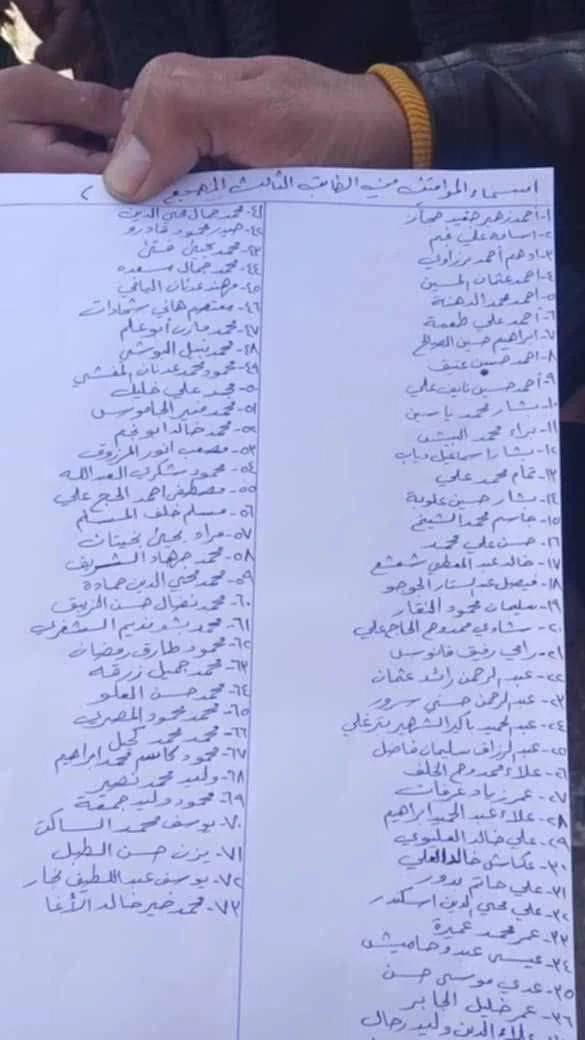 اسماء الموقوفين من الطابق الثالث المهجع ٢
١- احمد زهير صفيد حجار
٢- اسامه علي غنم
٣- ادهم أحمد برزاوي
٤- احمد عثمان الحسين
٥- احمد محمد الدهنة
٦- أحمد علي طعمة
٧- ابراهيم حسين الصالح
٨- احمد حسين عتيق
٩- أحمد حسين نايف علي
١٠- بشار محمد ياسين
١١- براء محمد
١٢- بشار اسماعيل دياب
١٣- تمام محمد علي
١٤- بشار حسين علوية
١٥- جاسم محمد الشيخ
١٦- حسن علي محمد
١٧- خالد عبد المعطي شعشع
١٨- فيصل عبد الستار الجوجو
١٩- سليمان محمود النقار
٢٠- شادي ممدوح الحاج علي
٢١- رامي رفيق فانوس
٢٢- عبد الرحمن رائد عثمان
٢٣- عبد الرحمن حسني سرور
٢٤- عبد الحميد باكير الشهير بترغلي
٢٥- عبد الرزاق سليمان فاضل
٢٦- علاء ممدوح الخلف
٢٧- عمر زياد عرفات
٢٨- علاء عبد الحميد ابراهيم
٢٩- علي خالد العليوي
٣٠- عكاش خالد العلي
٣١- علي حاتم بدور
٣٢- علي محي الدين اسكندر
٣٣- عمر محمد عميرة
٣٤- عيسى عبدو حاميش
٣٥- عدي موسى حسن
٣٦- عمر خليل الجابر
علاء الدين وليد رحال
٤١- محمد جمال محي الدين
٤٢- محمود قادرو
٤٣- محمد يحيى
٤٤- محمد جمال سعده
٤٥- مهند عدنان اليافي
٤٦- معتصم هاني شحادات
٤٧- محمد مازن أبو علم
٤٨- محمد نبيل البوشي
٤٩- محمود محمد عدنان المفشي
٥٠- محمد علي خليل
٥١- محمد منير الجاموس
٥٢- محمد خالد ابو نجم
٥٣- مصعب انور المرزوق
٥٤- محمود شكري العبد الله
٥٥- مصطفى احمد الحج علي
٥٦- مسلم خلف المسلم
٥٧- مراد يحيى بخيتان
٥٨- محمد جهاد الشريف
٥٩- محمد محي الدين حمادة
٦٠- محمد نضال حسن الزيبق
٦١- محمد نديم السنقري
٦٢- محمود طارق رمضان
٦٣- محمد جميل زرقه
٦٤- محمد حسن العلو
٦٥- محمد محمود المصري
٦٦- محمد محمد كحيل
٦٧- محمود كاسم محمد ابراهيم
٦٨- وليد محمد نصير
٦٩- محمود وليد جمعة
٧٠- يوسف محمد الساكت
٧١- يزن حسن الطبل
٧٢- يوسف عبد اللطيف نجار
٧٣- محمد خير خالد الأغا